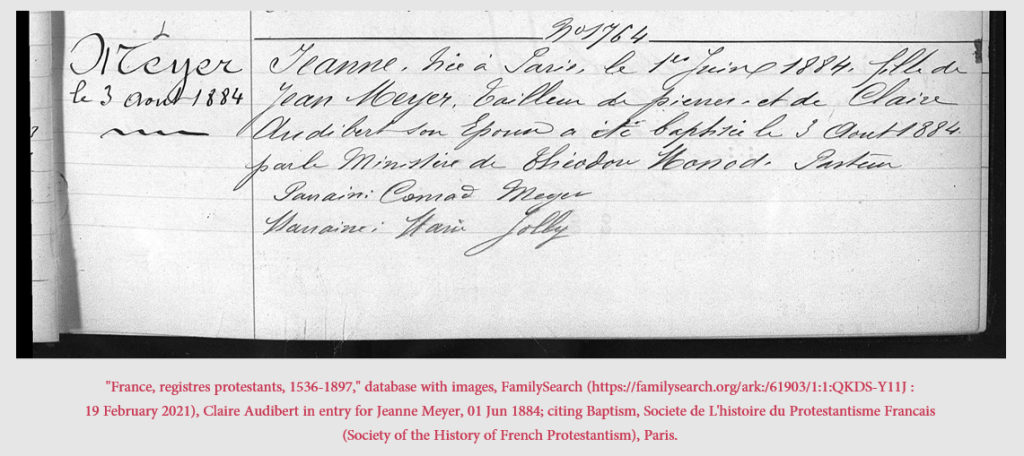 No 1764
Meyer
le 3 Aout 1884
Jeanne, née à Paris, le 1er Juin 1884, fille de
Jean Meyer, Tailleur de pierres, et de Claire
Audibert son Epouse a été baptisée le 3 Aout 1884.
par le Ministère de Théodore Monod. Pasteur
Parrain: Conrad Meyer
Marraine: Marie Jolly
"France, registres protestants, 1536-1897," database with images, FamilySearch (https://familysearch.org/ark:/61903/1:1:QKDS-Y11J :
19 February 2021), Claire Audibert in entry for Jeanne Meyer, 01 Jun 1884; citing Baptism, Societe de L'histoire du Protestantisme Francais
(Society of the History of French Protestantism), Paris.